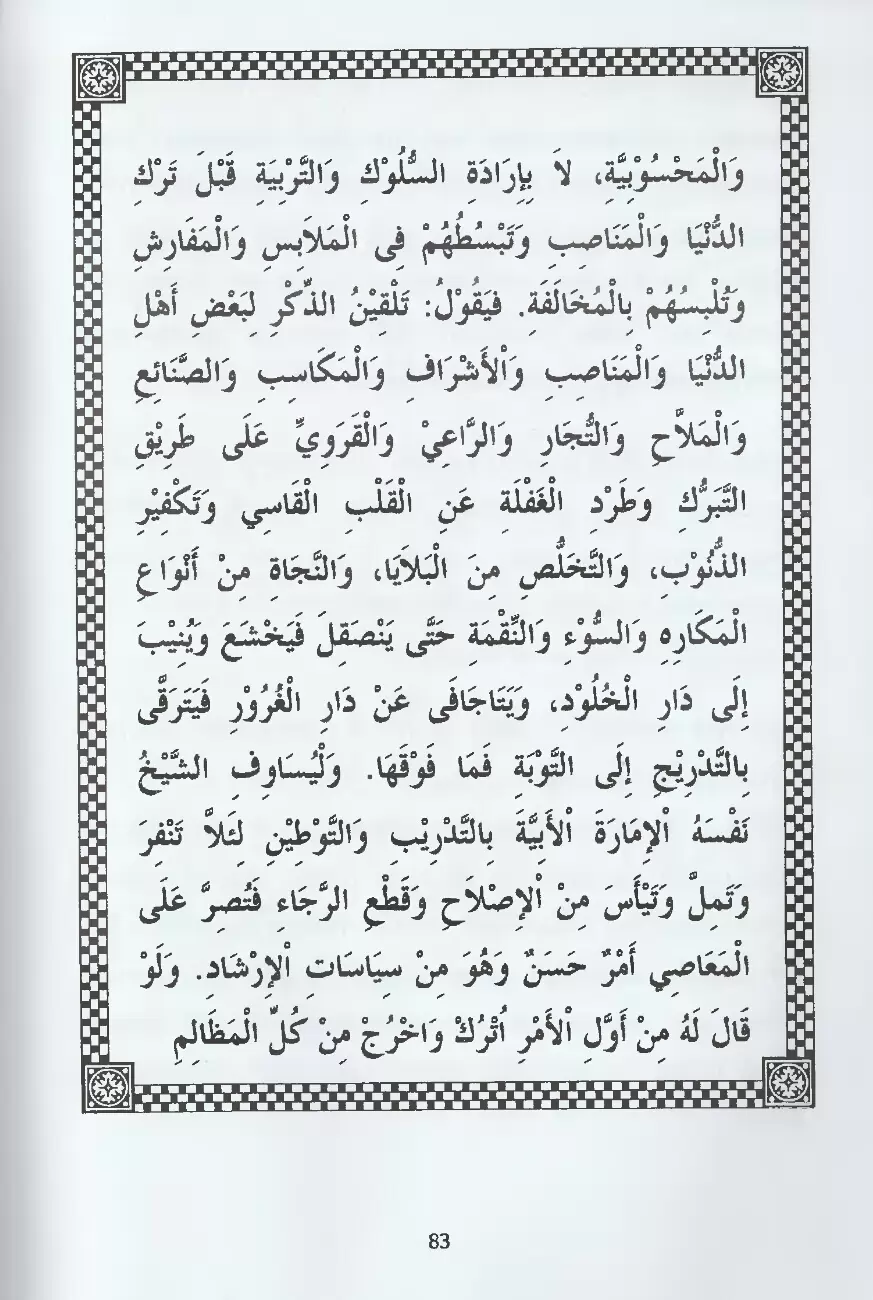 وَالْمَحْسُوْبِيَّةِ، لاَ بِإِرَادَةِ السُّلُوْكِ وَالتَّرْبِيَةِ قَبْلَ تَرْكِ
الدُّنْيَا وَالْمَنَاصِبِ وَتَبْسُطُهُمْ فِى الْمَلاَبِسِ وَالْمَفَارِشِ
وَتُلْبِسُهُمْ بِالْمُخَالَفَةِ. فَيَقُوْلُ: تَلْقِيْنُ الذِّكْرِ لِبَعْضِ أَهْلِ
الدُّنْيَا وَالْمَنَاصِبِ وَالْأَشْرَافِ وَالْمَكَاسِبِ وَالصَّنَائِعِ
وَالْمَلاَّحِ وَالتُّجَارِ وَالرَّاعِيْ وَالْقَرَوِيِّ عَلَى طَرِيْقِ
التَّبَرُّكِ وَطَرْدِ الْغَفْلَةِ عَنِ الْقَلْبِ الْقَاسِي وَتَكْفِيْرِ
الذُّنُوْبِ، وَالتَّخَلُّصِ مِنَ الْبَلاَيَا، وَالنَّجَاةِ مِنْ أَنْوَاعِ
الْمَكَارِهِ وَالسُّوْءِ وَالنِّقْمَةِ حَتَّى يَنْصَقِلَ فَيَخْشَعَ وَيُنِيْبَ
إِلَى دَارِ الْخُلُوْدِ، وَيَتَاجَافَى عَنْ دَارِ الْغُرُوْرِ فَيَتَرَقَّى
بِالتَّدْرِيْجِ إِلَى التَّوْبَةِ فَمَا فَوْقَهَا. وَلْيُسَاوِفِ الشَّيْخُ
نَفْسَهُ الْإِمَارَةَ الْأَبِيَّةَ بِالتَّدْرِيْبِ وَالتَّوْطِيْنِ لِئَلاَّ تَنْفِرَ
وَتَمِلَّ وَتَيْأَسَ مِنْ الْإِصْلاَحِ وَقَطْعِ الرَّجَاءِ فَتُصِرَّ عَلَى
الْمَعَاصِي أَمْرٌ حَسَنٌ وَهُوَ مِنْ سِيَاسَاتِ الْإِرْشَادِ. وَلَوْ
قَالَ لَهُ مِنْ أَوَّلِ الْأَمْرِ اُتْرُكْ وَاخْرُجْ مِنْ كُلِّ الْمَظَالِمِ
83